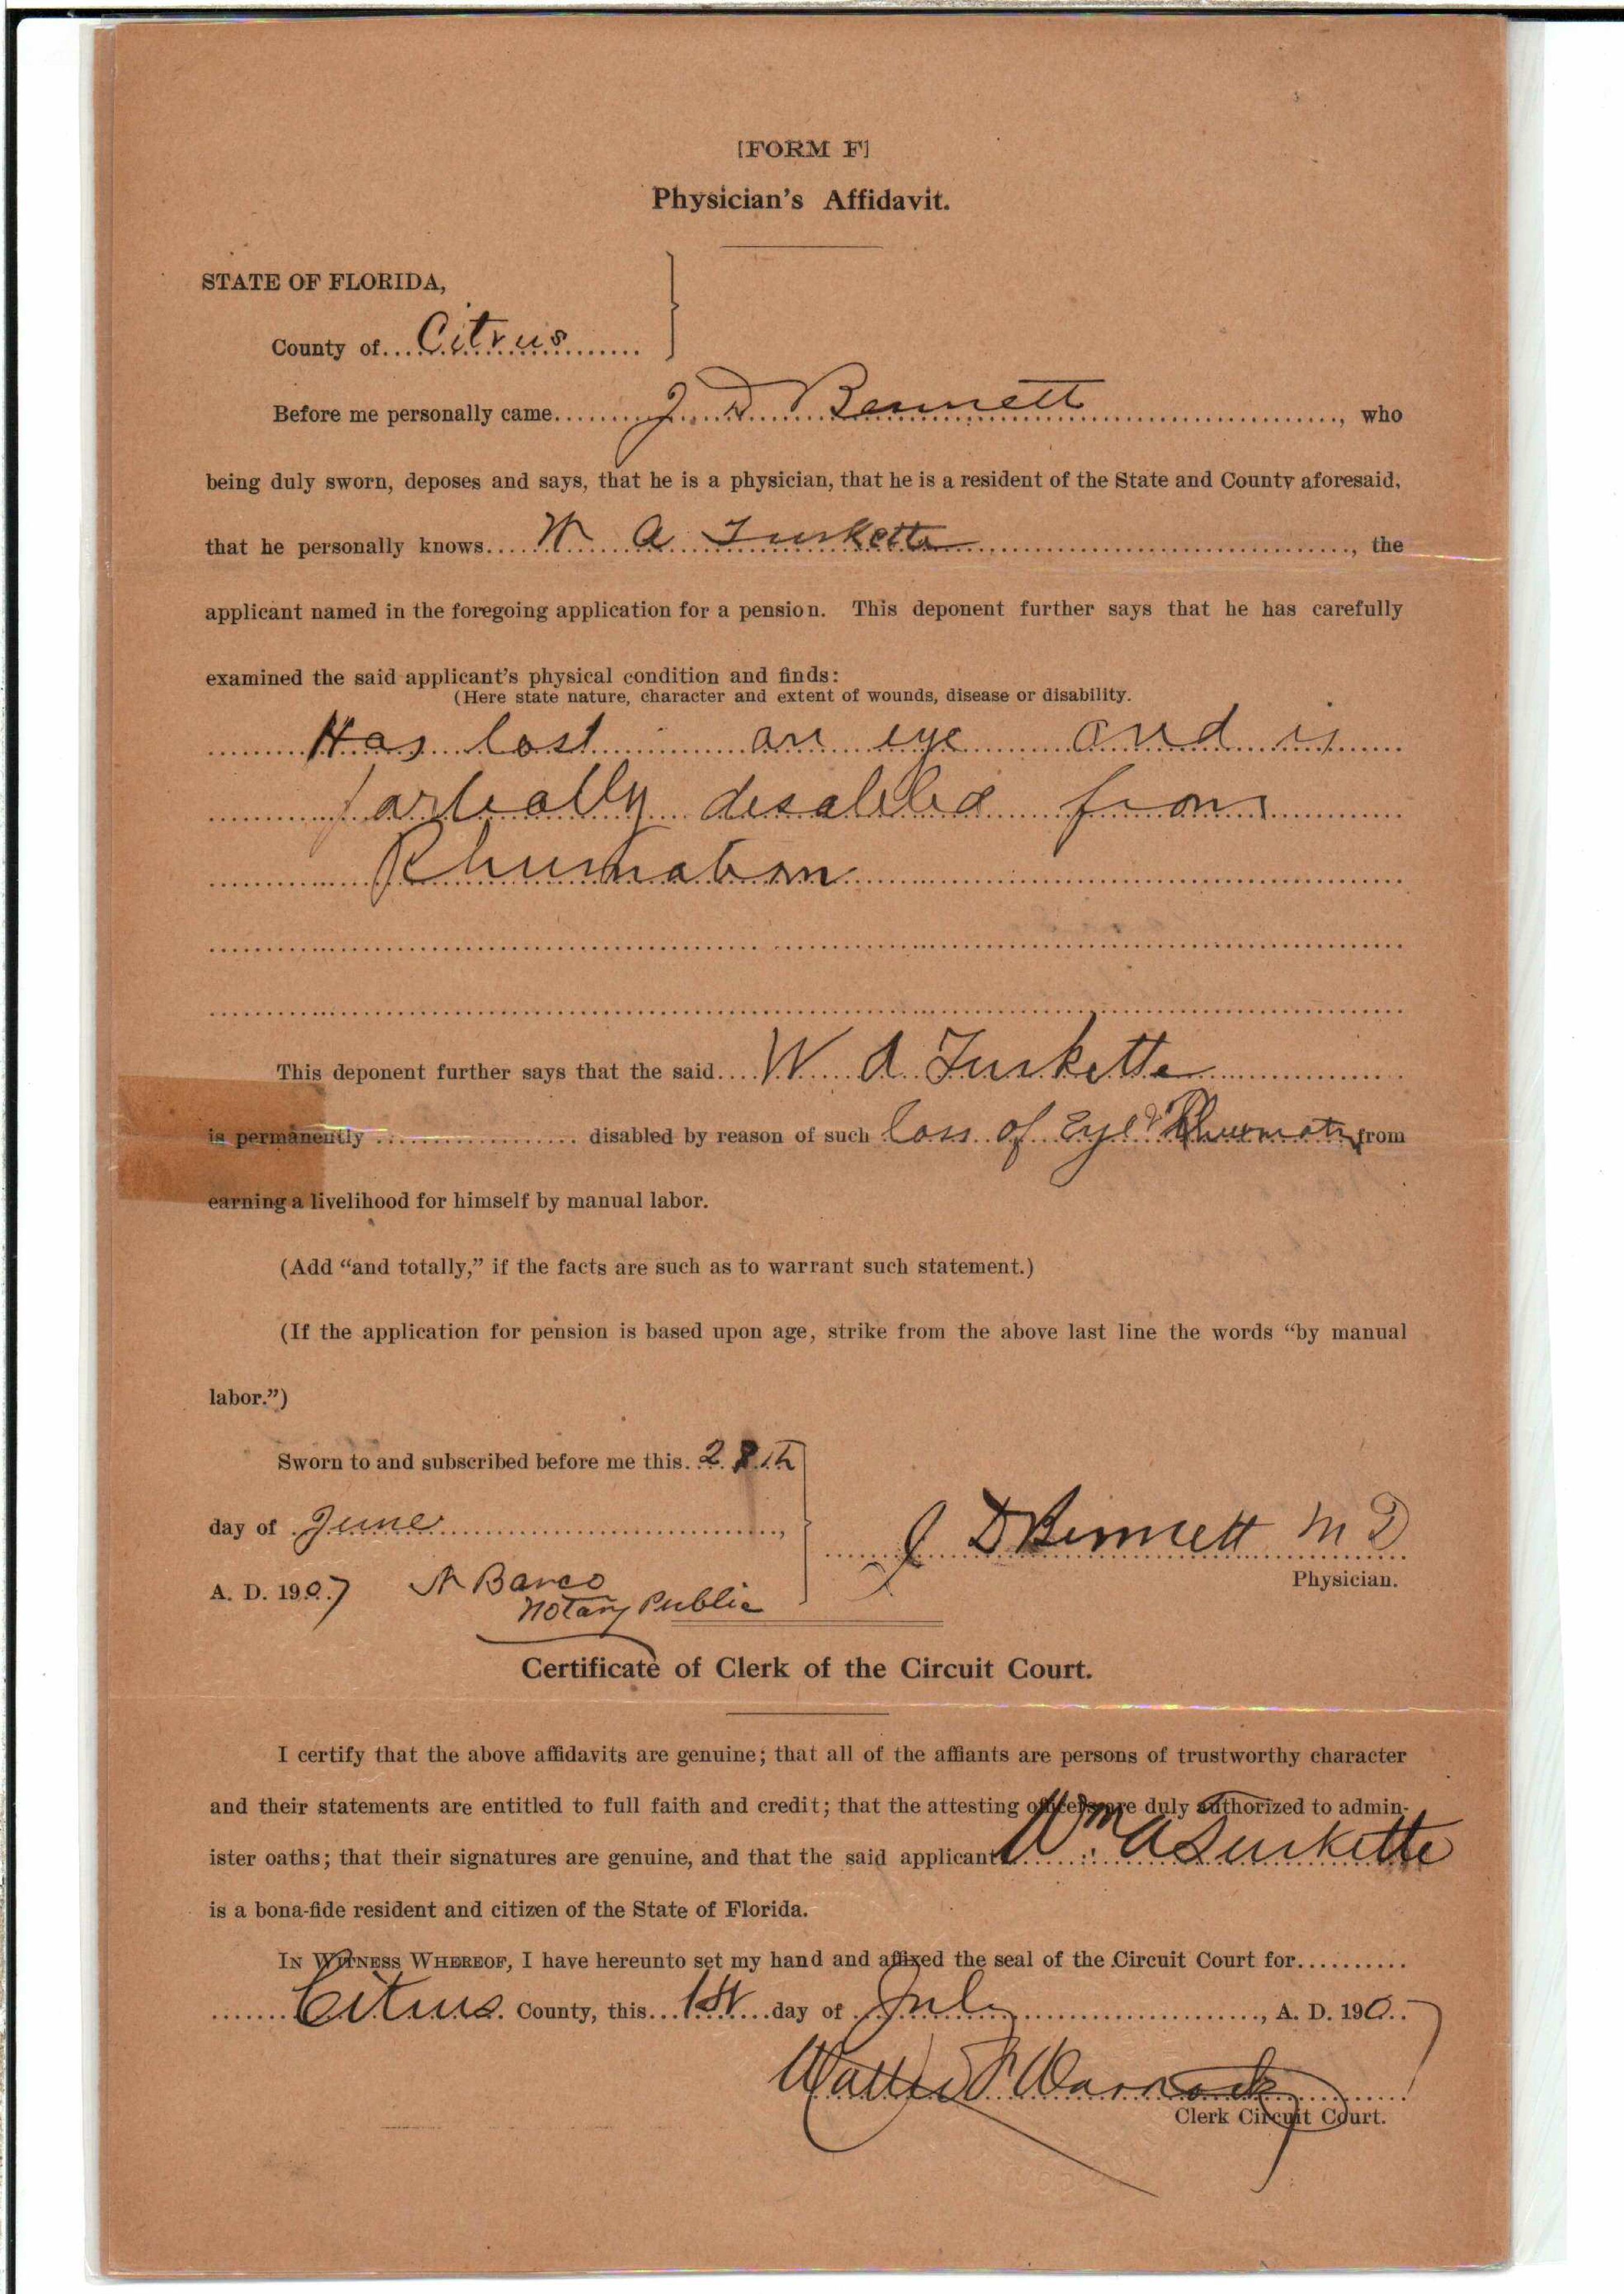 [FORM F]
Physician's Affidavit.
STATE OF FLORIDA,
County of Citrus
Before me personally came J. D. Bennett, who
being duly sworn, deposes and says, that he is a physician, that he is a resident of the State and County aforesaid,
that he personally knows W A Turkette, the
applicant named in the foregoing application for a pension. This deponent further says that he has carefully
examined the said applicant's physical condition and finds:
(Here state nature, character and extent of wounds, disease or disability.
Has lost an eye and is
partially disabled from
Rhumatism
This deponent further says that the said W. A. Turkette
is permanently disabled by reason of such loss of Eye & from
earning a livelihood for himself by manual labor.
(Add "and totally," if the facts are such as to warrant such statement.)
(If the application for pension is based upon age, strike from the above last line the words "by manual
labor.")
Sworn to and subscribed before me this 28th
day of June,
A. D. 1907 Barco
Notary Public
J D Bennett M D
Physician.
Certificate of Clerk of the Circuit Court.
I certify that the above affidavits are genuine; that all of the affiants are persons of trustworthy character
and their statements are entitled to full faith and credit; that the attesting officers are duly authorized to admin-
ister oaths; that their signatures are genuine, and that the said applicant Wm A Turkette
is a bona-fide resident and citizen of the State of Florida.
IN WITNESS WHEREOF, I have hereunto set my hand and affixed the seal of the Circuit Court for
Citrus County, this 1st day of July, A. D. 1907
Warnock
Clerk Circuit Court.